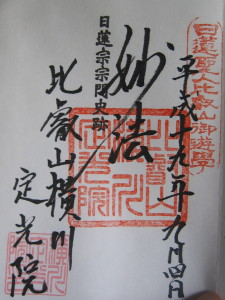 日蓮聖人比叡山御遊学
平成十九年九月四日
妙法
日蓮宗宗門史跡
比叡山横川
定光院